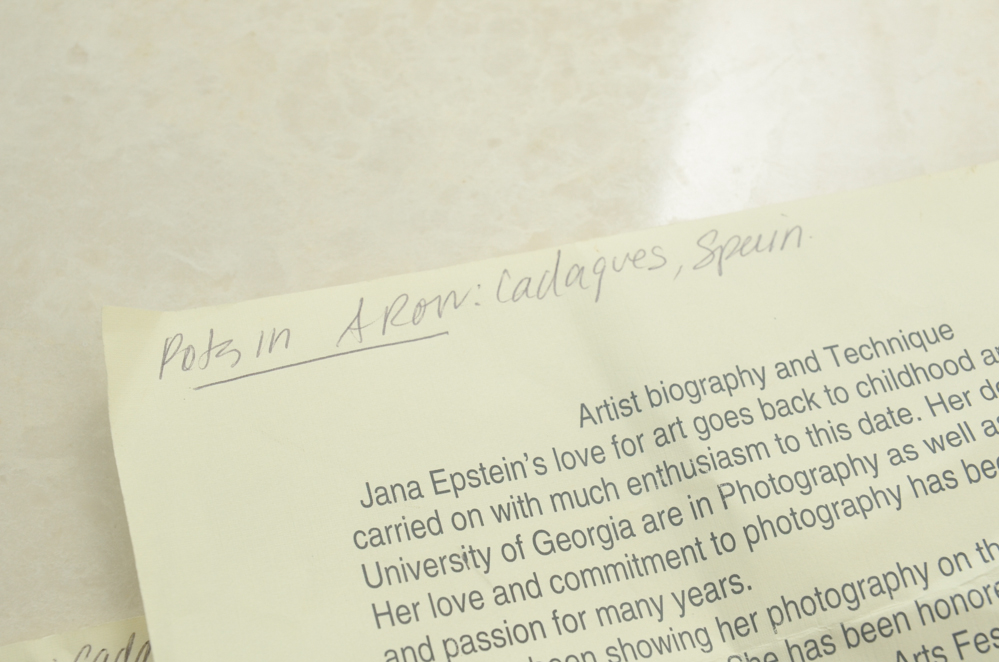 Pots in A Row: Cadaques, Spain
Artist biography and Technique
Jana Epstein's love for art goes back to childhood
carried on with much enthusiasm to this date. Her
University of Georgia are in Photography as well as
Her love and commitment to photography has been
and passion for many years.
been showing her photography on
She has been honored
Arts